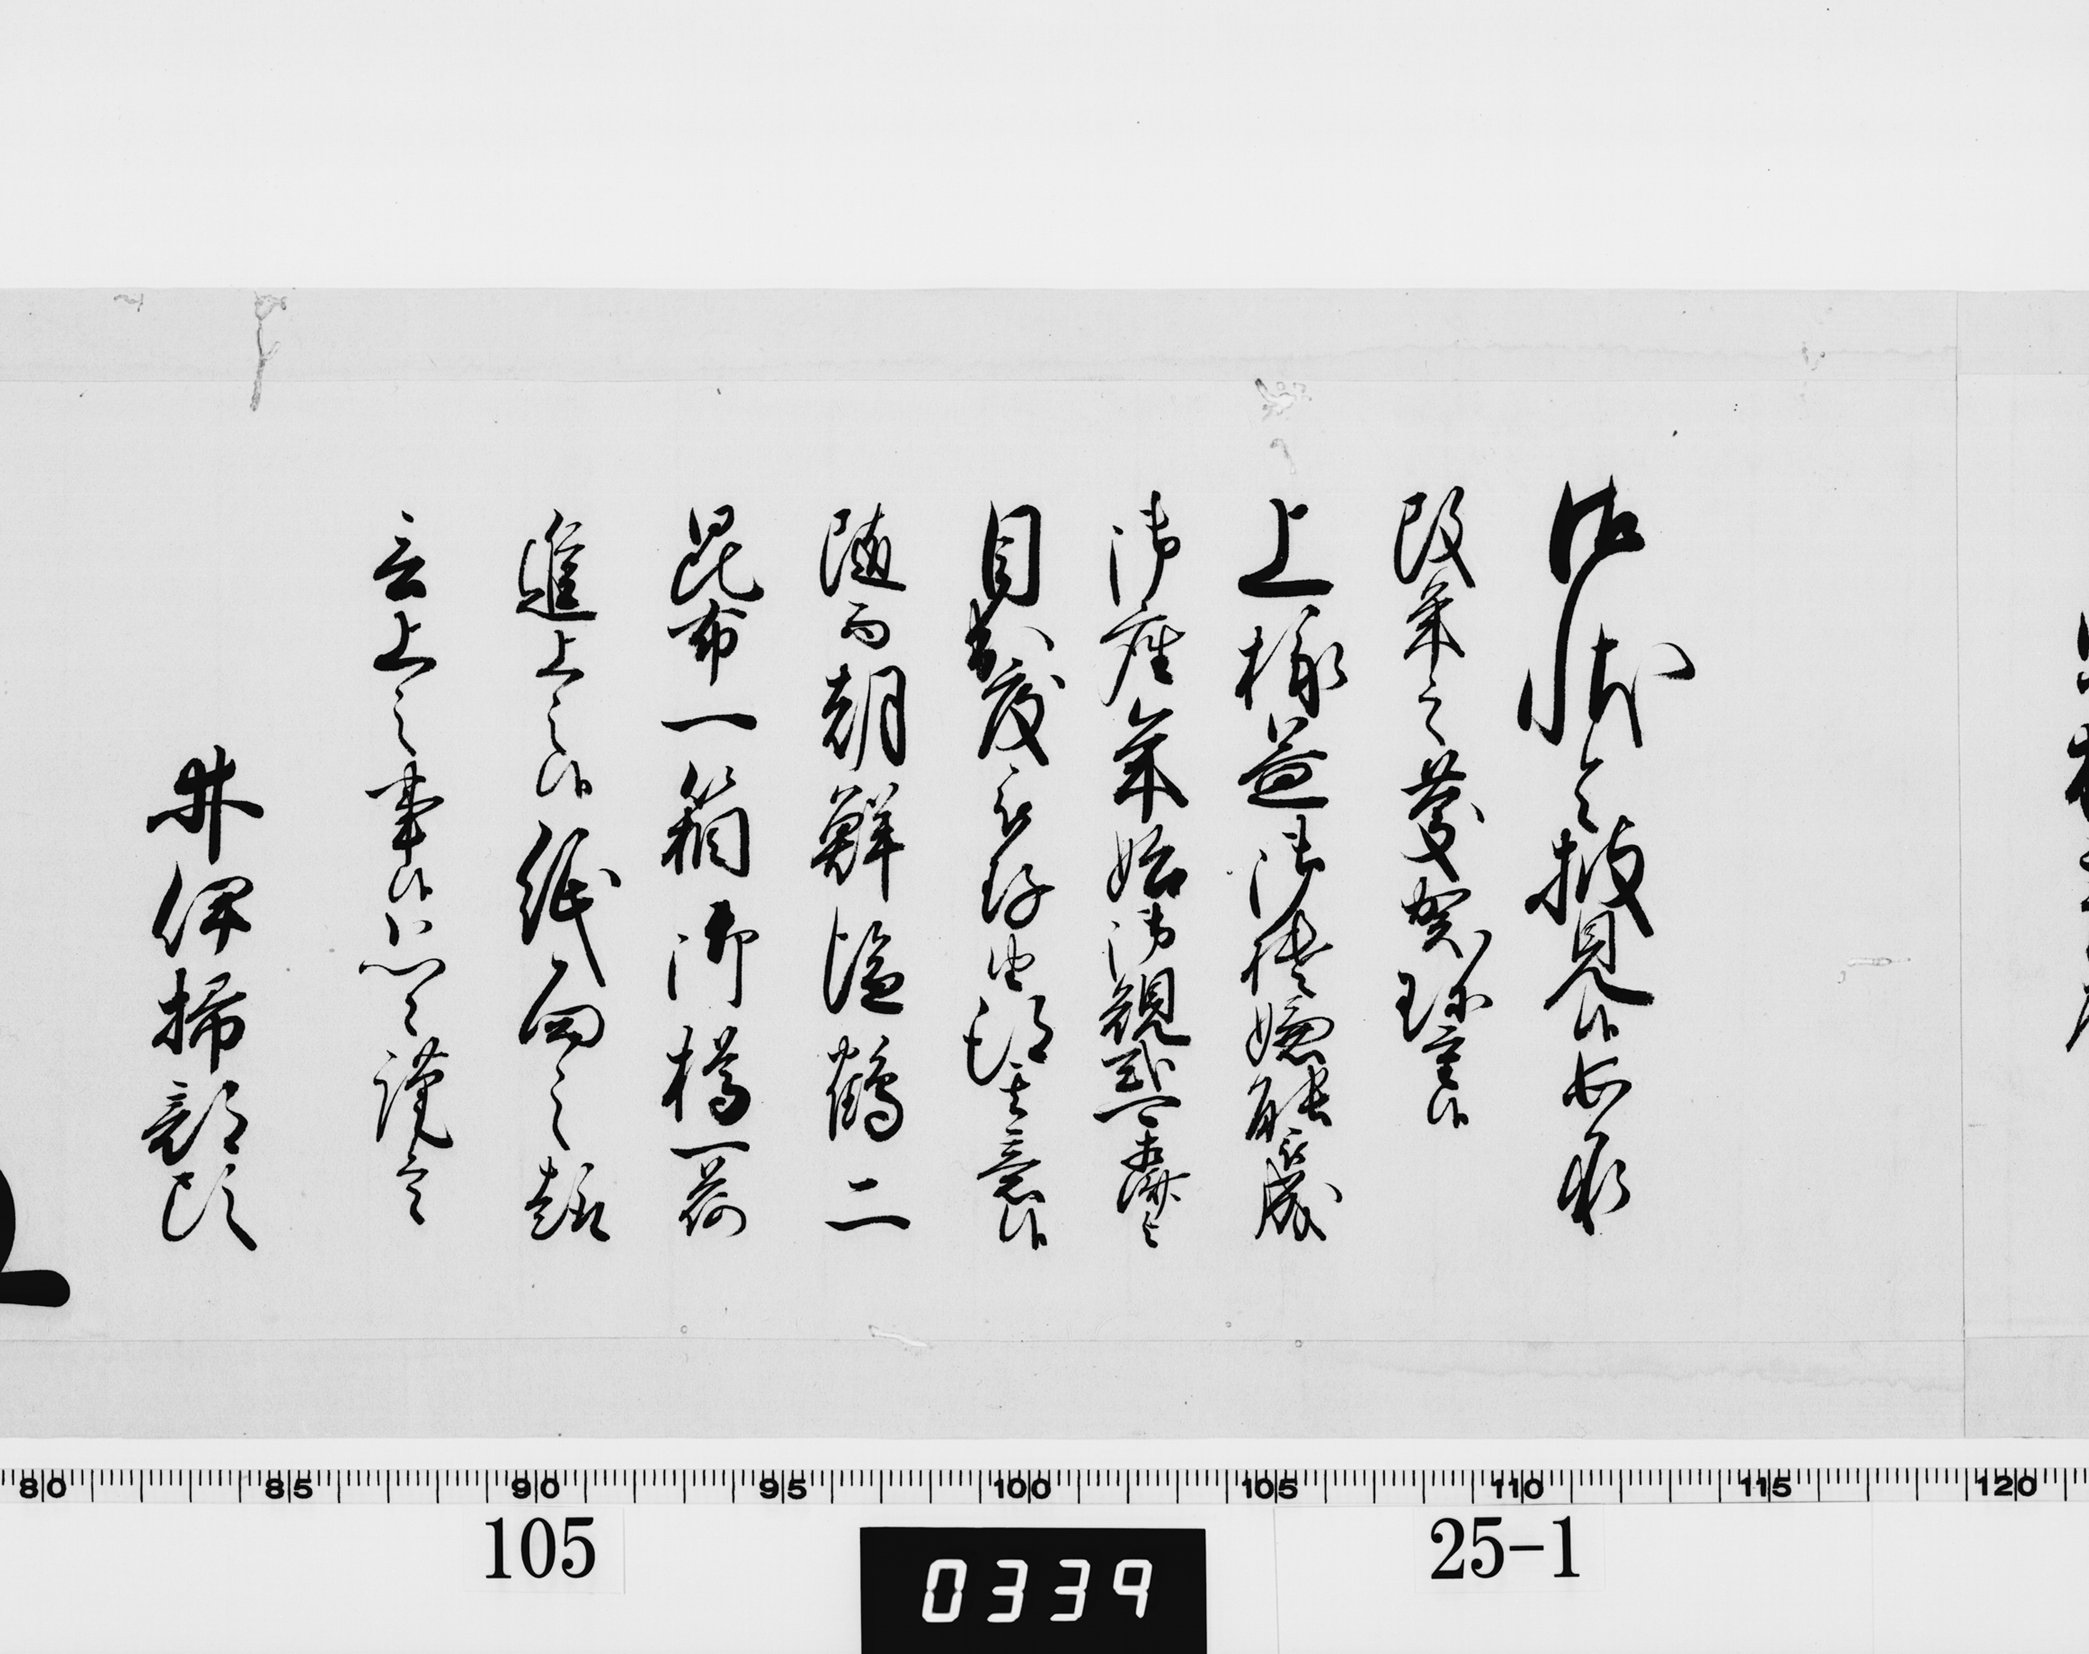 御状令披見候如承
改年之慶賀珍重候
上様益御機嫌能被成
御座年始御規式相済
目出度被存由得其意候
随而朝鮮塩鶴二
昆布一箱御樽一荷
進上之候紙面之趣
言上之事候恐々謹言
井伊掃部頭
80 85 90 95 100 105 110 115 120
105
0339
25-1